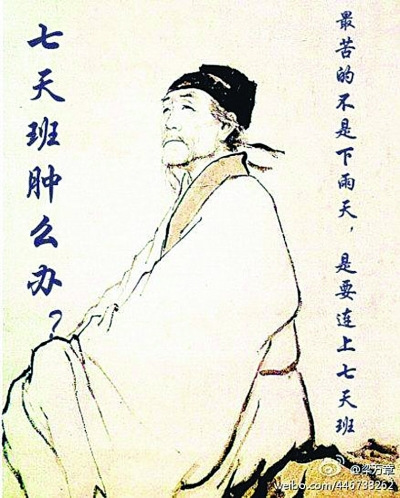 最苦的不是下雨天，是要连上七天班
七天班肿么办？
@梁万章
weibo.com/446738262